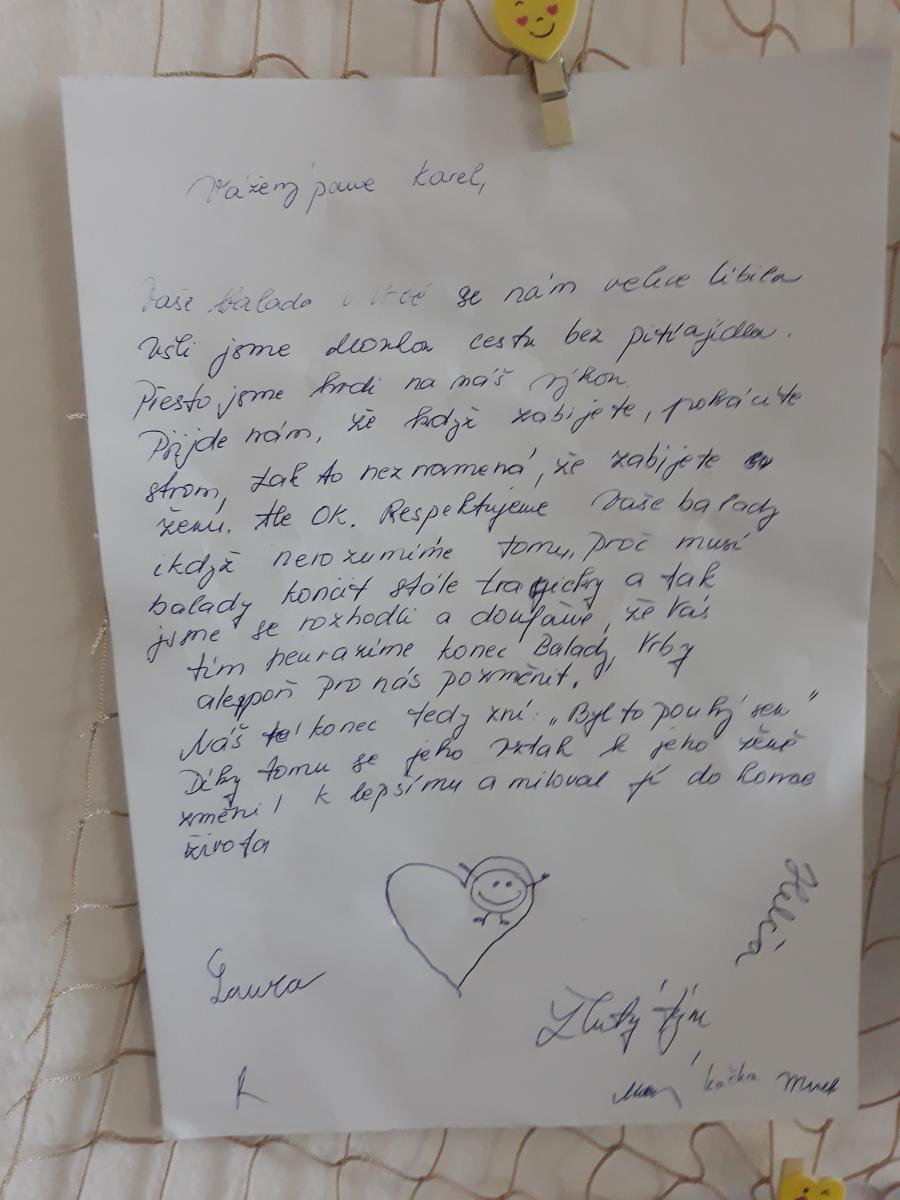 Vážený pane Karel,
Vaše balada o Vrbě se nám velice líbila
Ušli jsme dlouhou cestu bez pití a jídla.
Přesto jsme hrdi na náš výkon.
Přijde nám, že když zabijete, pokácíte
strom, tak to neznamená, že zabijete
ženu. Ale OK. Respektujeme Vaše balady
ikdyž nerozumíme tomu, proč musí
balady končit stále tragicky a tak
jsme se rozhodli a doufáme, že Vás
tím neurazíme konec Balady Vrby
alespoň pro nás pozměnit.
Náš konec tedy zní: „Byl to pouhý sen"
Díky tomu se jeho vztah k jeho ženě
změnil k lepšímu a miloval jí do konce
života
Laura
Žlutý tým
kačka